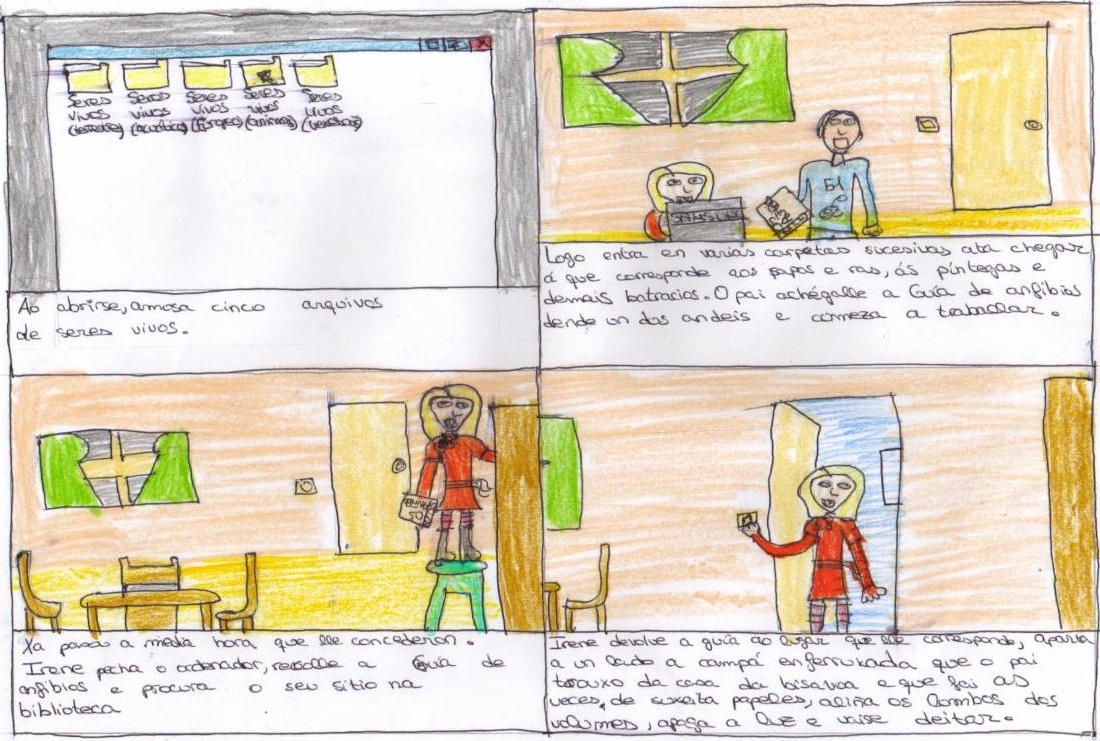 Seres vivos (terrestres)
Seres vivos (acuáticos)
Seres vivos (fungos)
Seres vivos (animais)
Seres vivos (vexetais)
Ao abrirse, amosa cinco arquivos
de seres vivos.
SAMSUNG
Logo entra en varias carpetas sucesivas ata chegar
á que corresponde aos sapos e ras, ás píntegas e
demais batracios. O pai achégalle a Guía de anfibios
dende un dos andeis e comeza a traballar.
Xa pasou a media hora que lle concederon.
Irene pecha o ordenador, recolle a Guía de
anfibios e procura o seu sitio na
biblioteca
Irene devolve a guía ao lugar que lle corresponde, aparta
a un lado a campá enferruxada que o pai
trouxo da casa da bisavoa e que fai as
veces, de suxeita papeles, aliña os lombos dos
volumes, apaga a luz e vaise deitar.